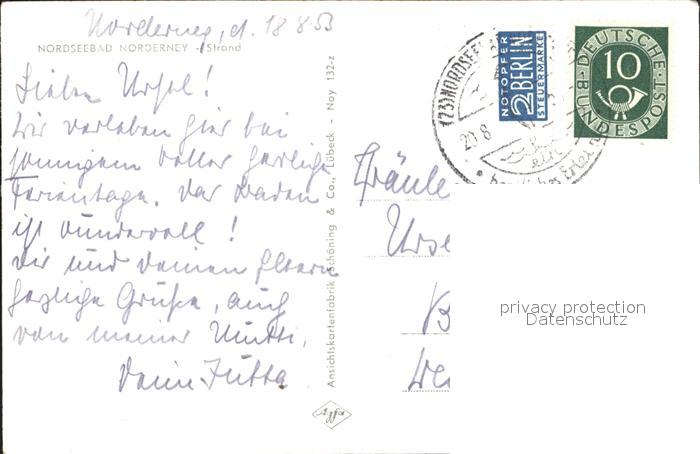 Norderney, d. 18 8 53
NORDSEEBAD NORDERNEY - Strand
Liebe Ursel!
Wir verleben hier bei
sonnigem Wetter herrliche
Ferientage. Das Baden
ist wundervoll!
Dir und Deinen Eltern
herzliche Grüße, auch
von meiner Mutti,
Deine Jutta
Ansichtskartenfabrik Schöning & Co., Lübeck - Noy 132-z
Agfa
(23) NORDSEE
20.8
NOTOPFER
2 BERLIN
STEUERMARKE
DEUTSCHE
10
BUNDESPOST
Fräule
Urse
privacy protection
Datenschutz